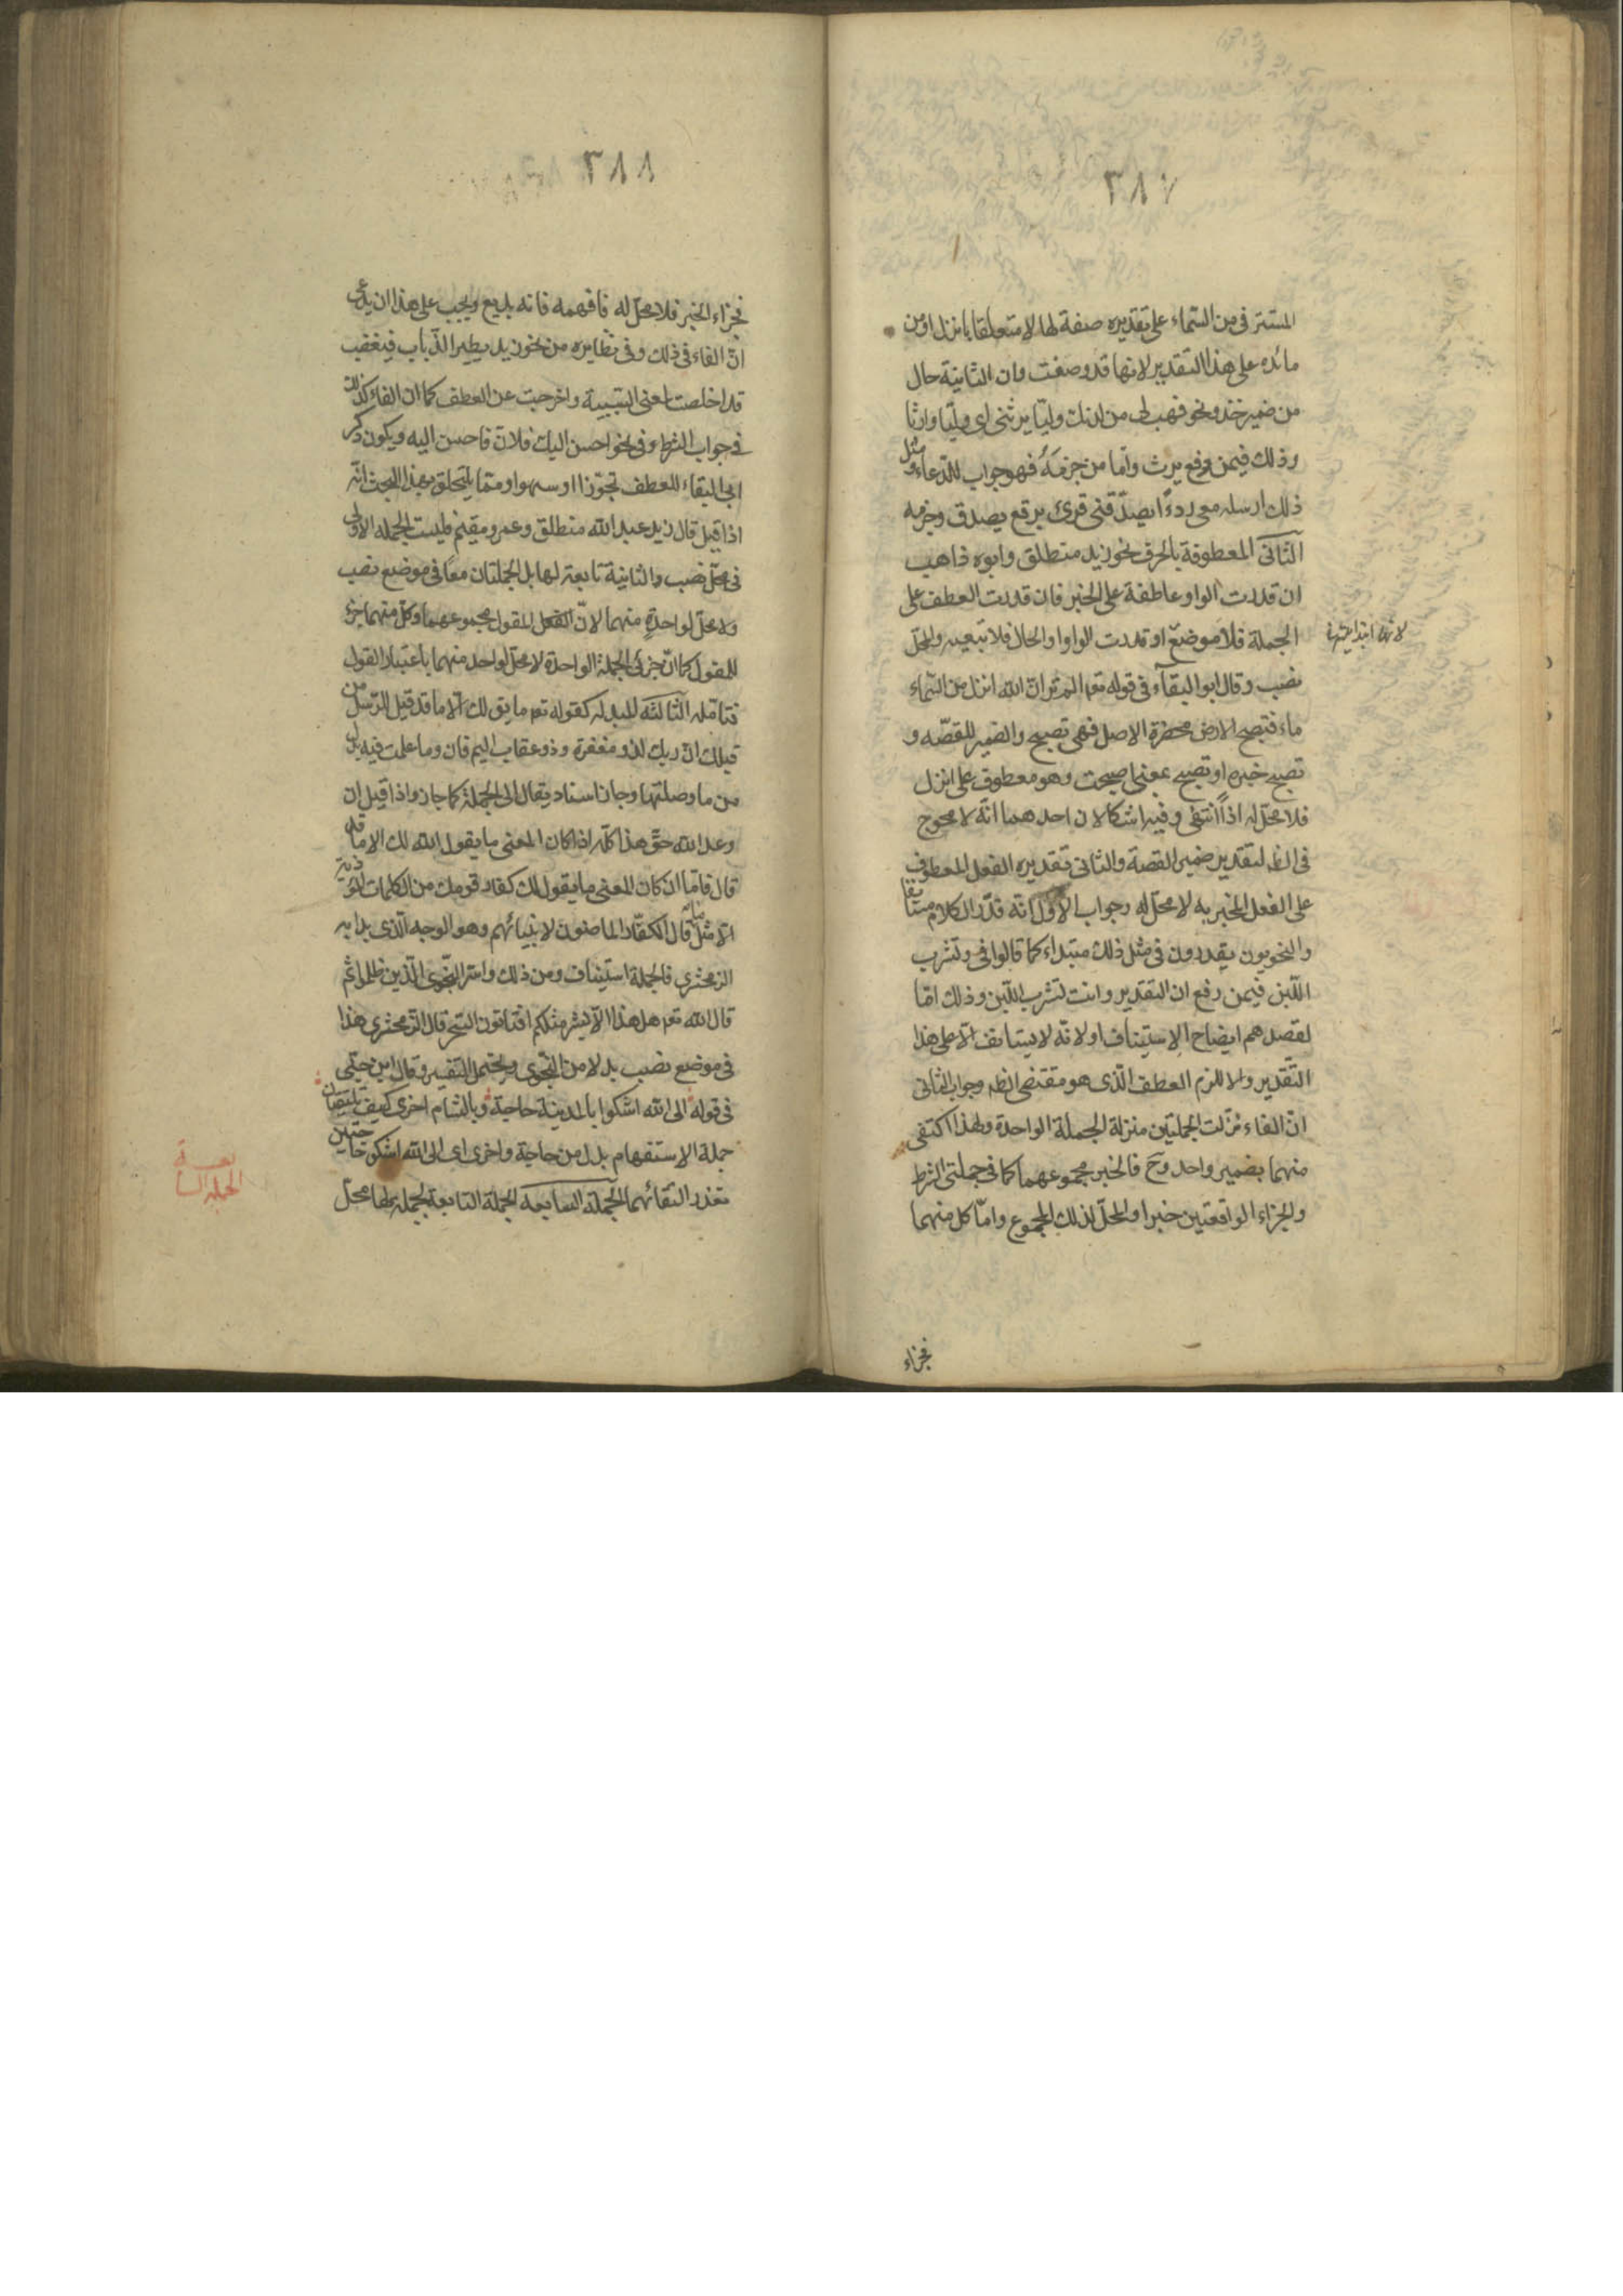 ٣٨٧
المستتر في من السماء على تقديره صفة لها لا متعلقا بانزل او من
مائده على هذا التقدير لانها قد وصفت وان الثانية حال
من ضمير خذ ونحو فهب لى من لدنك وليّا يرثنى اى وليّا وارثا
وذلك فيمن رفع يرث وامّا من جزمه فهو جواب للدّعاء ومثل
ذلك ارسله معى ردءًا يصدّقنى قرئ برفع يصدق وجزمه
الثّانى المعطوفة بالحرف نحو زيد منطلق وابوه ذاهب
ان قدرت الواو عاطفة على الخبر فان قدرت العطف على
الجملة فلا موضع او قدرت الواو واو الحال فلا تبعيه والمحلّ
نصب وقال ابو البقآء فى قوله تعم الم تر انّ الله انزل من السّماء
ماء فتصبح الارض مخضرة الاصل فهى تصبح والضمير للقصّه و
تصبح خبره او تصبح بمعنى اصبحت وهو معطوف على انزل
فلا محلّ له اذاً انتهى وفيه اشكالان احدهما انّه لا محوج
فى الظ لتقدير ضمير القصة والثانى تقديره الفعل المعطوف
على الفعل المخبر به لا محلّ له وجواب الاوّل انّه قدّر الكلام مستانفا
والنحويون يقدرون فى مثل ذلك مبتداء كما قالوا فى وتشرب
اللّبن فيمن رفع ان التقدير وانت تشرب اللّبن وذلك امّا
لقصدهم ايضاح الاستيناف او لانّه لا يستانف الّا على هذا
التّقدير والا للزم العطف الّذى هو مقتضى الظ وجواب الثانى
انّ الفاء نزّلت الجملتين منزلة الجملة الواحدة ولهذا اكتفى
منهما بضمير واحد وح فالخبر مجموعهما كما فى جملتى الشرط
والجزاء الواقعتين خبرا والمحلّ لذلك المجموع وامّا كل منهما
فجزاء
٣٨٨
فجزاء الخبر فلا محلّ له فافهمه فانه بديع ويجب على هذا ان يدعى
انّ الفاء فى ذلك وفى نظايره من نحو زيد يطير الذّباب فيغضب
قد اخلصت لمعنى السّببية واخرجت عن العطف كما ان الفاء كذلك
فى جواب الشرط وفى نحو احسن اليك فلان فاحسن اليه ويكون ذكر
ابى البقاء للعطف تجوّزا او سهوا ومّما يتحلق بهذا البحث انّه
اذا قيل قال زيد عبد الله منطلق وعمرو مقيم فليست الجمله الاولى
فى محلّ نصب والثانية تابعة لها بل الجملتان معًا فى موضع نصب
ولا محلّ لواحدة منهما لانّ المقول مجموعهما وكلّ منهما جزء
للمقول كما انّ جزئى الجملة الواحدة لا محلّ لواحد منهما باعتبار القول
فتامّله الثّالثه المبدله كقوله تعم ما يق لك الّا ما قد قيل للرّسل من
قبلك انّ ربك لذو مغفرة وذو عقاب اليم فان وما عملت فيه بدل
من ما وصلتها وجاز اسناد يقال الى الجملة كما جاز واذا قيل ان
وعد الله حقّ هذا كلّه اذا كان المعنى ما يقول الله لك الا ما قد
قال فامّا ان كان المعنى ما يقول لك كفار قومك من الكلمات المؤذية
الّا مثل ما قال الكفّار الماضون لانبيائهم وهو الوجه الّذى بدا به
الزمخشرى فالجملة استيناف ومن ذلك واسرّوا النّجوى الّذين ظلموا ثم
قال الله تعم هل هذا الّا بشر مثلكم افتاتون السّحر قال الزّمخشرى هذا
فى موضع نصب بدلا من النّجوى ويحتمل التفسير وقال ابن جنّى
فى قوله الى الله اشكوا بالمدينة حاجة وبالشام اخرى كيف يلتقيان
جملة الاستفهام بدل من حاجة واخرى اى الى الله اشكو حاجتين
تعذر التقائهما الجملة السابعة الجملة التابعة لجملة لها محلّ